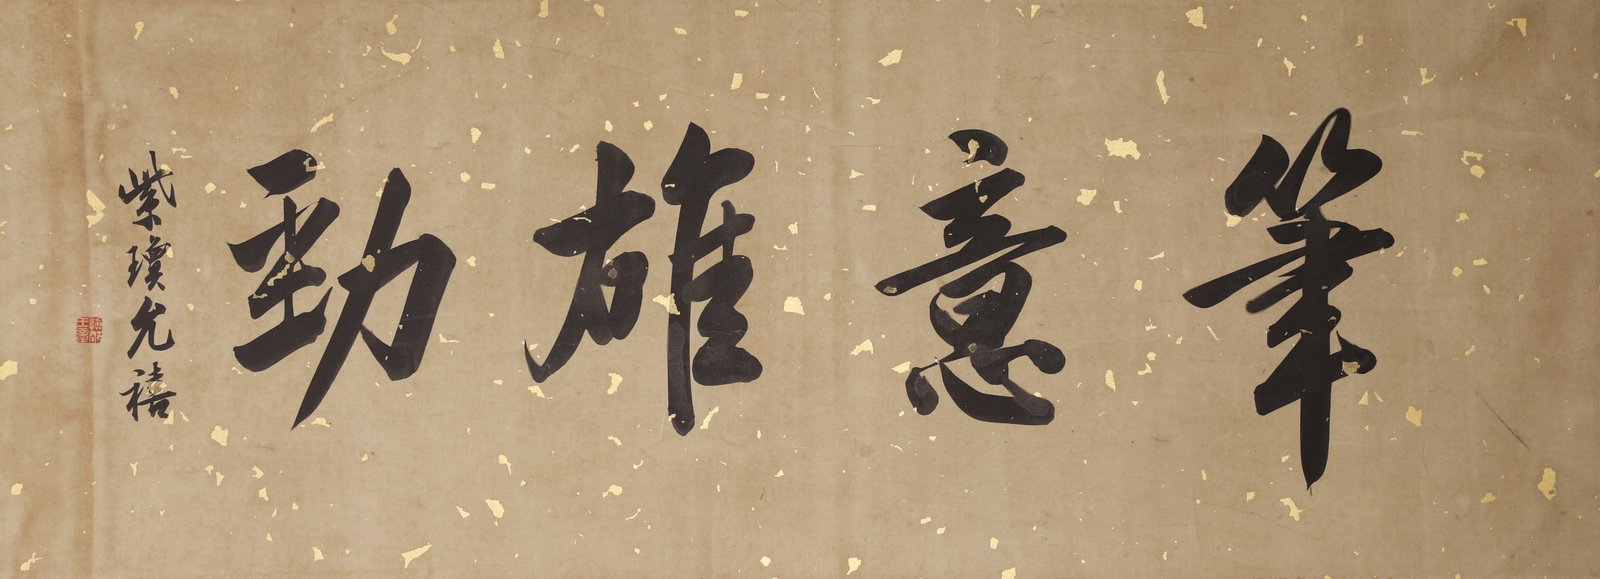 筆意雄勁
紫瓊允禧